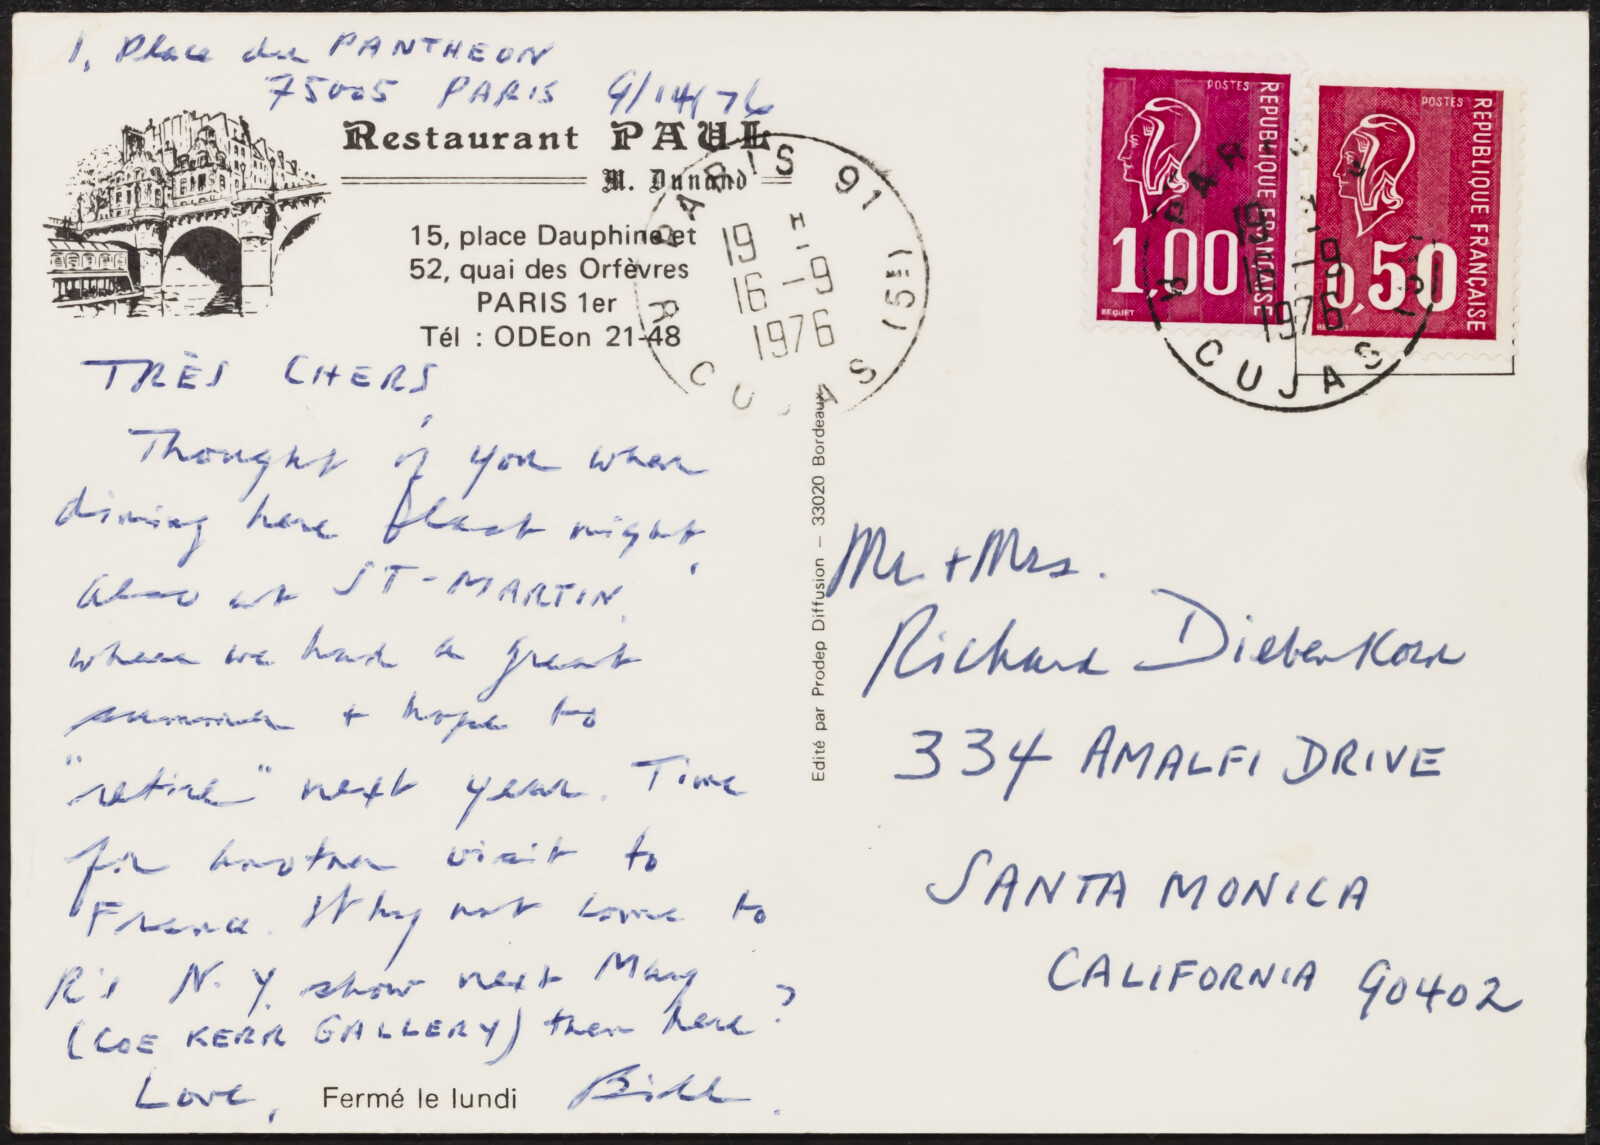 1, Place du PANTHEON
75005 PARIS 9/14/76
Restaurant PAUL
M. Dunand
15, place Dauphine et
52, quai des Orfèvres
PARIS 1er
Tél : ODEon 21-48
TRÈS CHERS,
Thought of you when
dining here last night,
also at ST-MARTIN,
where we had a great
summer + hope to
"retire" next year. Time
for another visit to
France. Why not come to
R's N.Y. show next May
(COE KERR GALLERY) then here?
Love, Bill.
Fermé le lundi
PARIS 91
19 H
16 -9
1976
R. CUJAS (5E)
Edité par Prodep Diffusion – 33020 Bordeaux
POSTES
REPUBLIQUE FRANÇAISE
1,00
BEQUET
POSTES
REPUBLIQUE FRANÇAISE
0,50
BEQUET
PARIS
19
16 -9
1976
R. CUJAS
Mr + Mrs.
Richard Diebenkorn
334 AMALFI DRIVE
SANTA MONICA
CALIFORNIA 90402